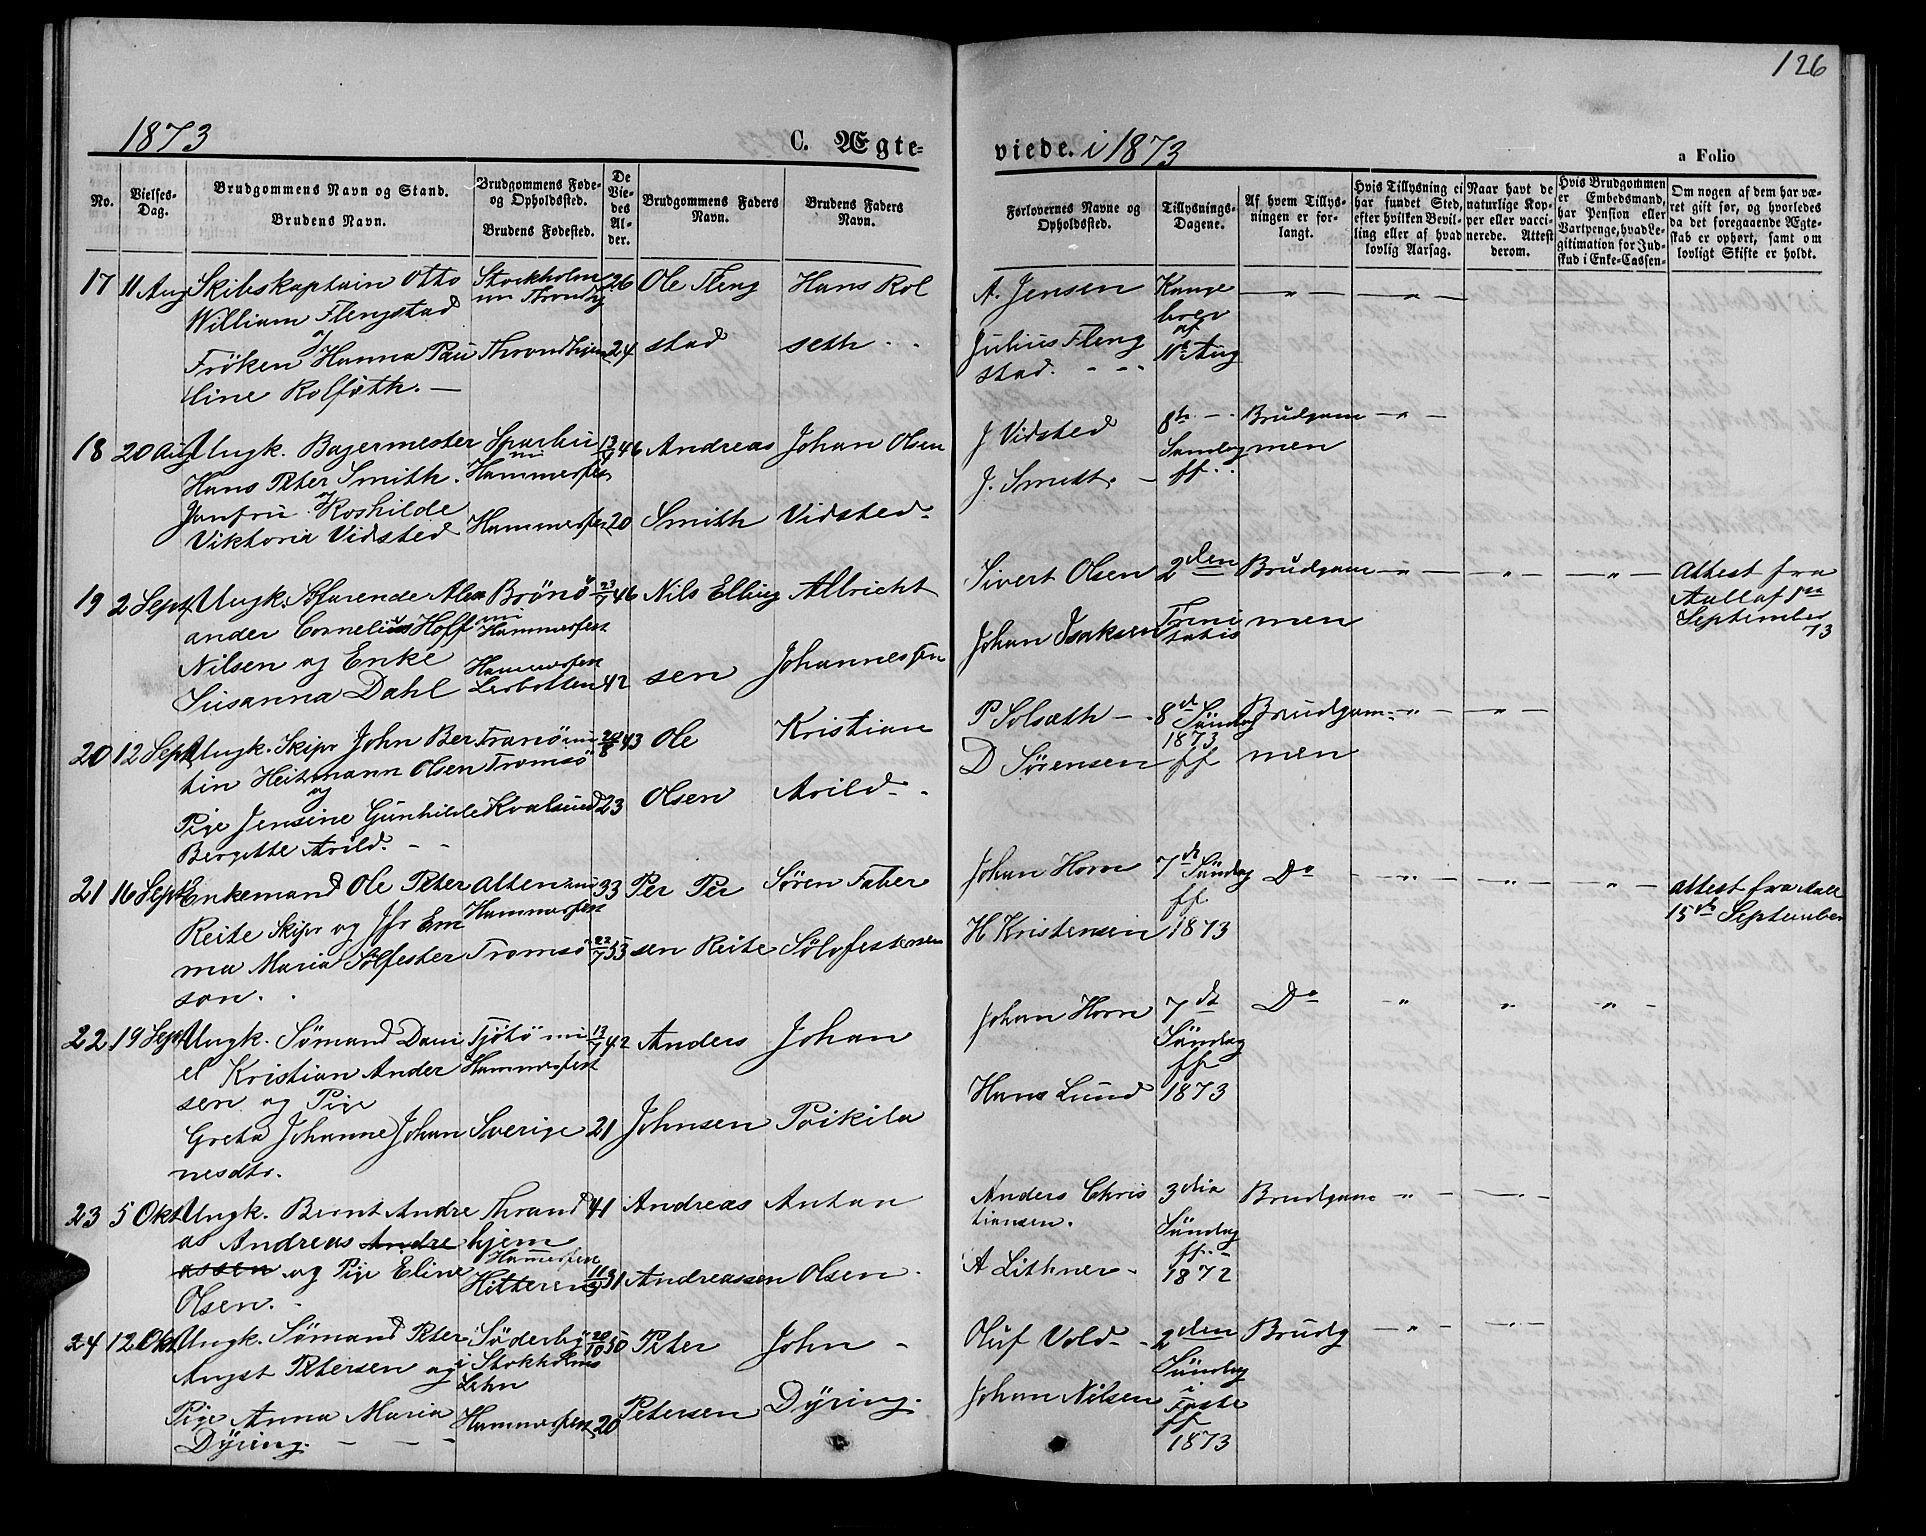 126
1873
C. Ægte-
viede. i 1873
a Folio
No.
Vielses-
Dag.
Brudgommens Navn og Stand.
Brudens Navn.
Brudgommens Føde-
og Opholdssted.
Brudens Fødested.
De
Vie-
des
Al-
der.
Brudgommens Faders
Navn.
Brudens Faders
Navn.
Forlovernes Navne og
Opholdssted.
Tillysnings-
Dagene.
Af hvem Tillys-
ningen er for-
langt.
Hvis Tillysning ei
har fundet Sted,
efter hvilken Bevil-
ling eller af hvad
lovlig Aarsag.
Naar havt de
naturlige Kop-
per eller vacci-
nerede. Attest
derom.
Hvis Brudgommen
er Embedsmand,
har Pension eller
Vartpenge, hvad Le-
gitimation for Ind-
skud i Enke-Cassen-
Om nogen af dem har væ-
ret gift før, og hvorledes
da det foregaaende Ægte-
skab er ophørt, samt om
lovligt Skifte er holdt.
17 11 Aug Skibskaptain Otto
William Flengstad
og
Fröken Hanna Pau
line Rolfsøth. —
Stockholm
Throndhjem
26
24
Ole Fleng
stad
Hans Rol
seth
A. Jensen
Julius Fleng
stad.
Konge
brev
af
11te Aug
18 20 Aug Ungk. Bagermester
Hans Peter Smith.
og
Jomfru Roshilde
Viktoria Vidsted
Hammerfest
Hammerfest
46
20
Andreas
Smith
Johan Olsen
Vidsted
J Vidsted
J. Smith.
8de
Søndag
ff
Brudgom
men
19 2 Sept. Ungk. Söfarende Alex
ander Cornelius Hoff
Nilsen og Enke
Susanna Dahl
Brönö
Hammerfest
Hammerfest
Lerbotten
23/7 46
42
Nils Elling
sen
Albricht
Johannessen
Sivert Olsen
Johan Isaksen
2den
Trini
tatis
Brudgom
men
Attest fra
Aall af
September
73
20 12 Sept Ungk. Skipr John Ber
tin Heitmann Olsen
og
Pige Jensine Gunhilde
Bergitte Arild.
Tranö
Tromsö
Kvalsund
43
23
Ole
Olsen
Kristian
Arild
P Solsæth
D Sørensen
8de
Søndag
1873
ff
Brudgom
men
21 16 Sept Enkemand Ole Peter
Reite Skipr og Jfr Em
ma Maria Sölfester
son.
Alten
Hammerfest
Tromsö
33
22/7 53
Per Per
sen Reite
Søren Faber
Sölvfestersen
Johan Horn
H Kristensen
7de Søndag
ff
1873
Do
Attest fra Aall
15de September
22 19 Sept Ungk. Sömand Dani
el Kristian Ander
sen og Pige
Greta Johanne Johan
nesdtr.
Tjötö
Hammerfest
Sverige
13/7 42
21
Anders
Johnsen
Johan
Poikila
Johan Horn
Hans Lund
7de
Søndag
ff
1873
Do
23 5 Okt Ungk. Bernt Andre
as Andreas Andre
assen og Pige Eline
Olsen.
Thrond
hjem
Hammerfest
Hitteren
41
31
Andreas
Andreassen
Anton
Olsen
Anders Chris
tiansen.
A Lithner
3die
Søndag
ff
1872
Brudgom
24 12 Okt Ungk. Sömand Peter
Angst Petersen og
Pige Anna Maria
Dÿring.
Söderby
i Stokholms
Lehn
Hammerfest
20/10 50
20
Peter
Petersen
John
Dÿring.
Oluf Vold
Johan Nilsen
2den
Søndag
i
Faste
ff
1873
Brudg